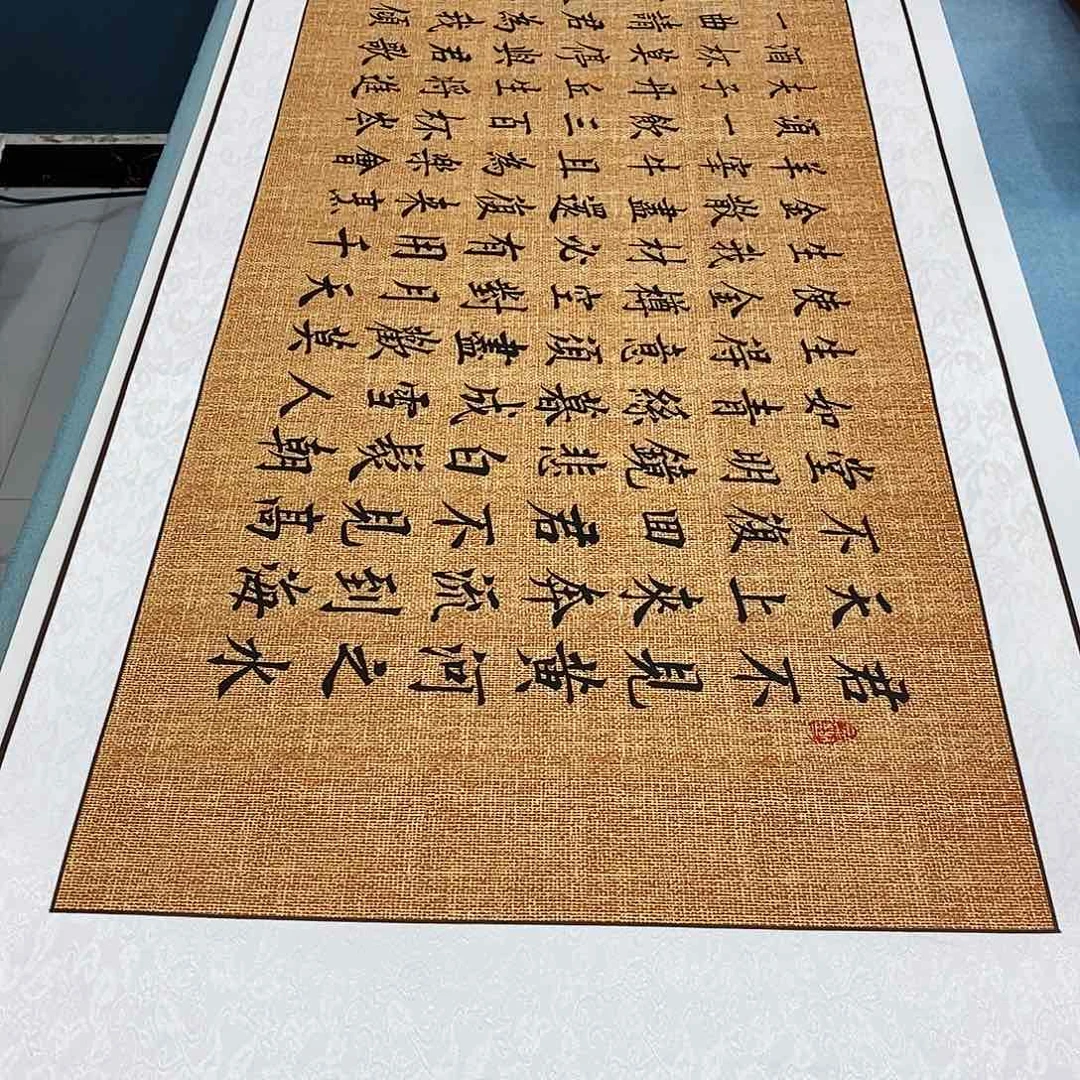 君不見黄河之水
天上來奔流到海
不復回君不見高
堂明鏡悲白髮朝
如青絲暮成雪人
生得意須盡歡莫
使金樽空對月天
生我材必有用千
金散盡還復来烹
羊宰牛且為樂會
須一飲三百杯岑
夫子丹丘生將進
酒杯莫停與君歌
一曲請君為我傾